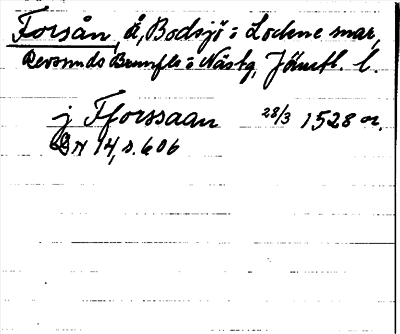 Forsån, å, Bodsjö o Lockne snr,
Revsunds Brunflo o Näskg, Jämtl. l.
j Fforssaan 28/3 1528 or.
DN 14, s. 606